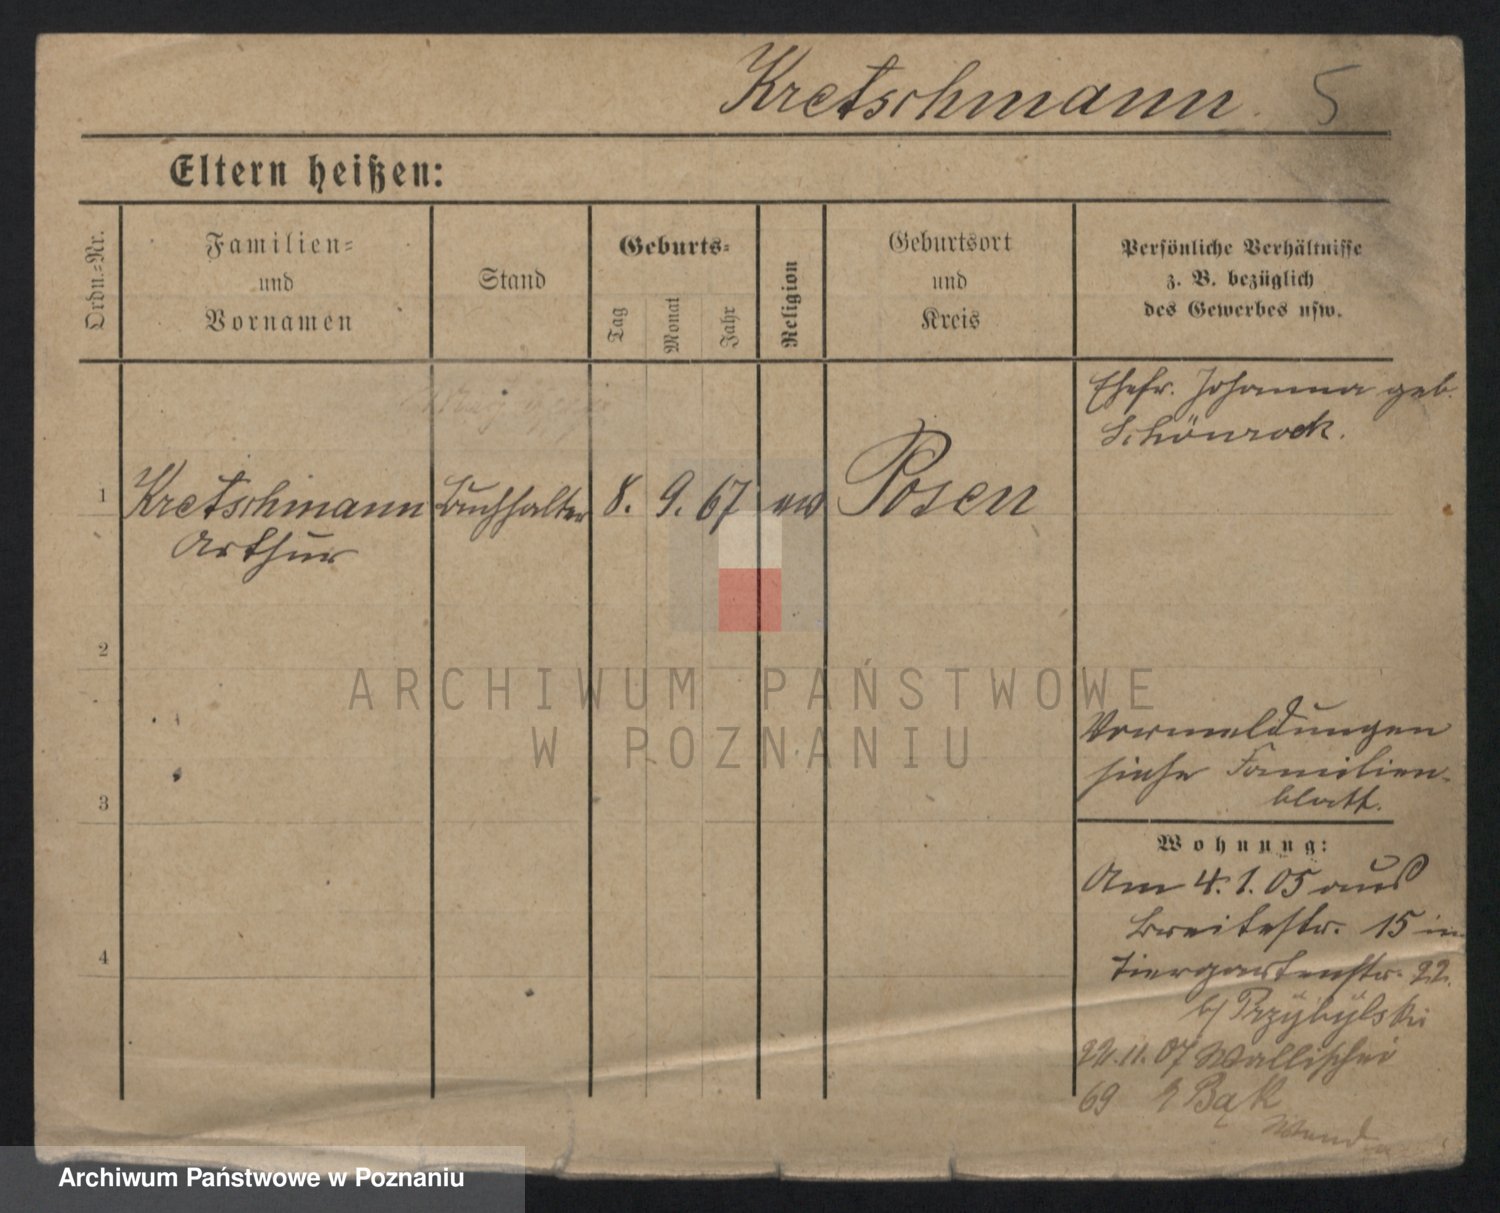 Kretschmann 5
Eltern heißen:
Ordn.-Nr.
Familien-
und
Vornamen
Stand
Geburts-
Tag
Monat
Jahr
Religion
Geburtsort
und
Kreis
Persönliche Verhältnisse
z. B. bezüglich
des Gewerbes usw.
Ehefr. Johanna geb.
Schönrock.
1 Kretschmann Buchhalter 8. 9. 67 ev Posen
Arthur
2
3
4
Vormeldungen
siehe Familien-
blatt.
Wohnung:
Am 4.1.05 aus
Breitestr. 15 in
Tiergartenstr. 22.
b/ Przybylski
22.11.07 Wallischei
69 Bąk
Wend
ARCHIWUM PAŃSTWOWE
W POZNANIU
Archiwum Państwowe w Poznaniu